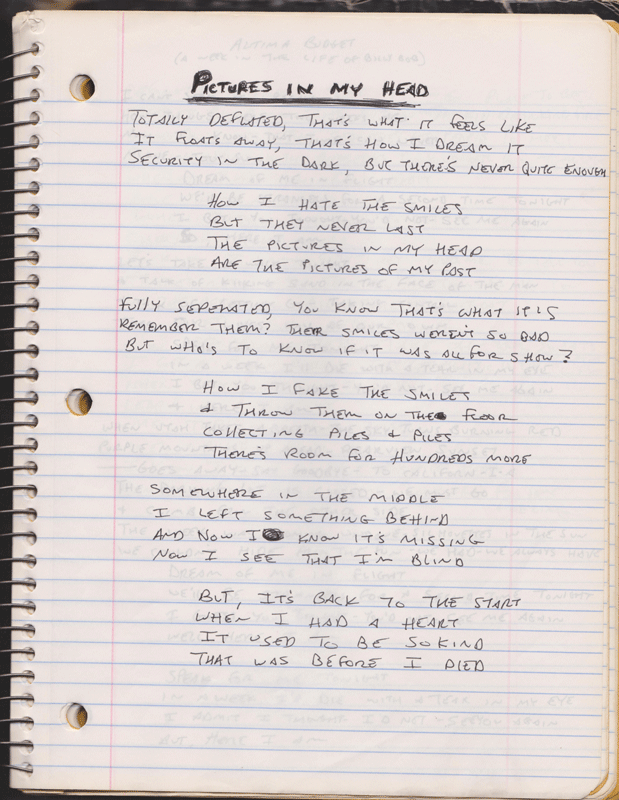 PICTURES IN MY HEAD
TOTALLY DEFLATED, THAT'S WHAT IT FEELS LIKE
IT FLOATS AWAY, THAT'S HOW I DREAM IT
SECURITY IN THE DARK, BUT THERE'S NEVER QUITE ENOUGH
HOW I HATE THE SMILES
BUT THEY NEVER LAST
THE PICTURES IN MY HEAD
ARE THE PICTURES OF MY PAST
FULLY SEPERATED, YOU KNOW THAT'S WHAT IT IS
REMEMBER THEM? THEIR SMILES WEREN'T SO BAD
BUT WHO'S TO KNOW IF IT WAS ALL FOR SHOW?
HOW I FAKE THE SMILES
& THROW THEM ON THE FLOOR
COLLECTING PILES & PILES
THERE'S ROOM FOR HUNDREDS MORE
SOMEWHERE IN THE MIDDLE
I LEFT SOMETHING BEHIND
AND NOW I KNOW IT'S MISSING
NOW I SEE THAT I'M BLIND
BUT, IT'S BACK TO THE START
WHEN I HAD A HEART
IT USED TO BE SO KIND
THAT WAS BEFORE I DIED